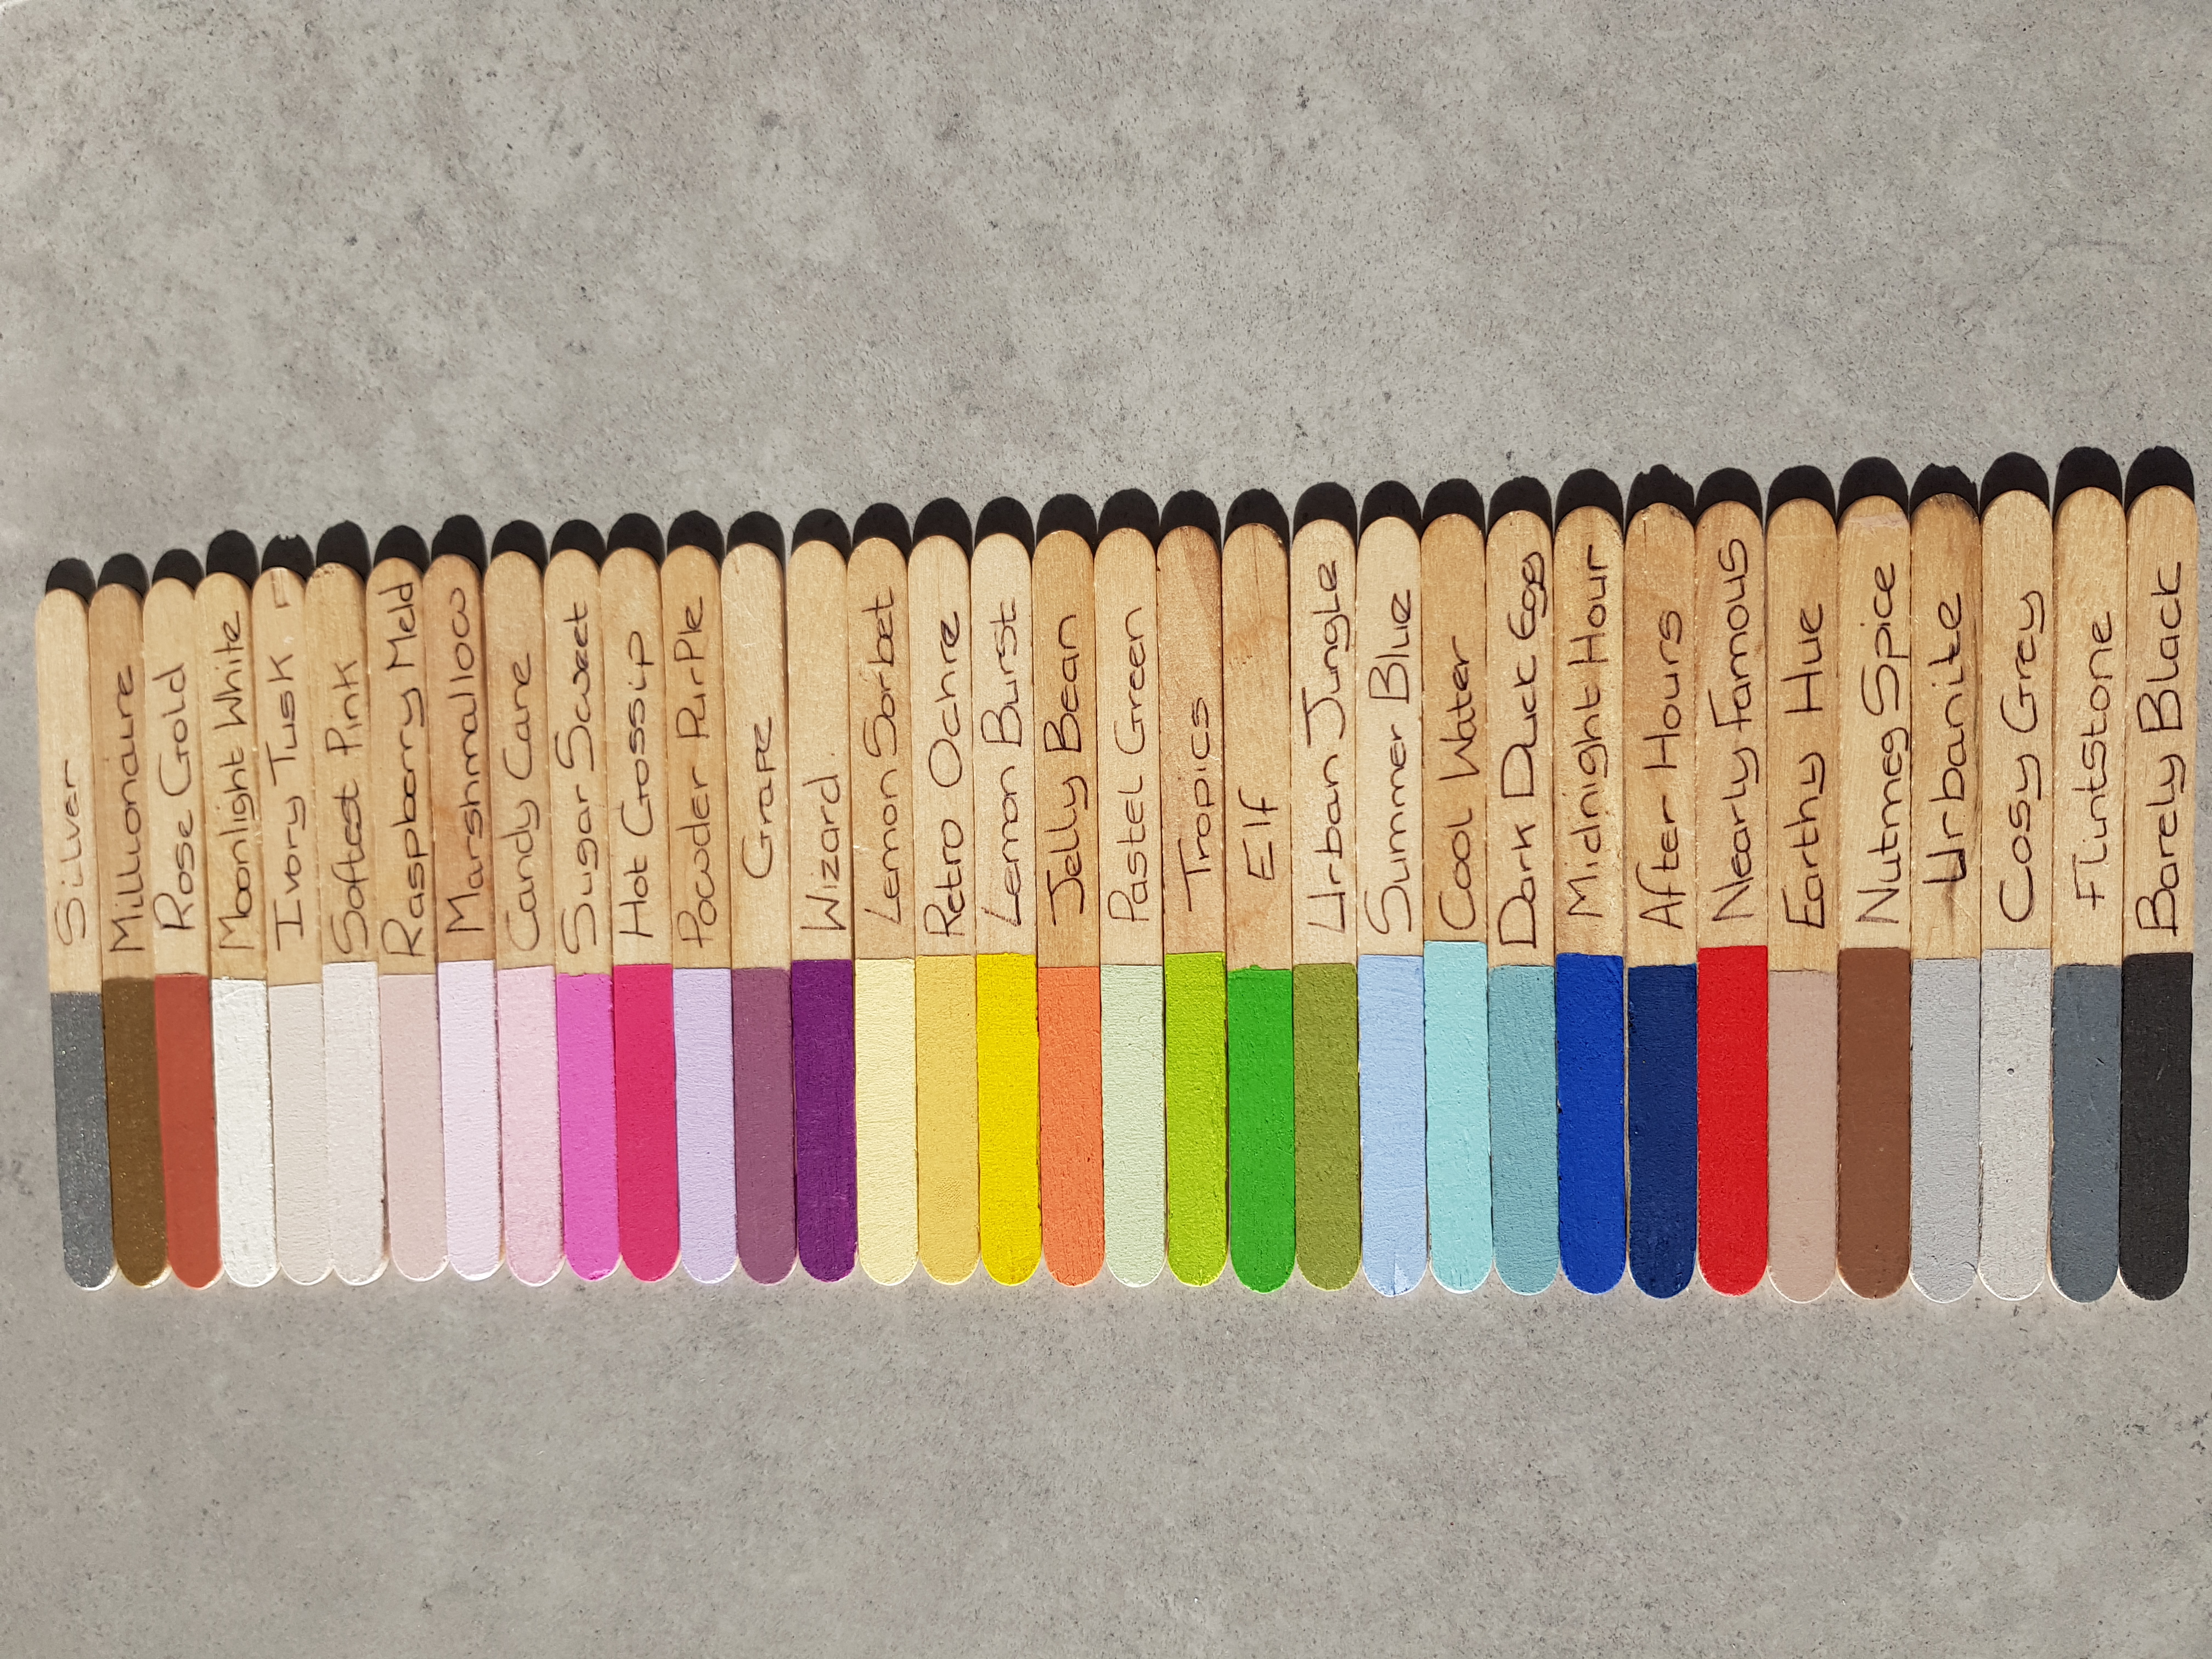 Silver
Millionaire
Rose Gold
Moonlight White
Ivory Tusk
Softest Pink
Raspberry Meld
Marshmallow
Candy Cane
Sugar Sweet
Hot Gossip
Powder Purple
Grape
Wizard.
Lemon Sorbet
Retro Ochre
Lemon Burst
Jelly Bean
Pastel Green
Tropics
Elf
Urban Jungle
Summer Blue
Cool Water
Dark Duck Egg
Midnight Hour
After Hours
Nearly Famous
Earthy Hue
Nutmeg Spice
Urbanite
Cosy Grey
Flintstone
Barely Black